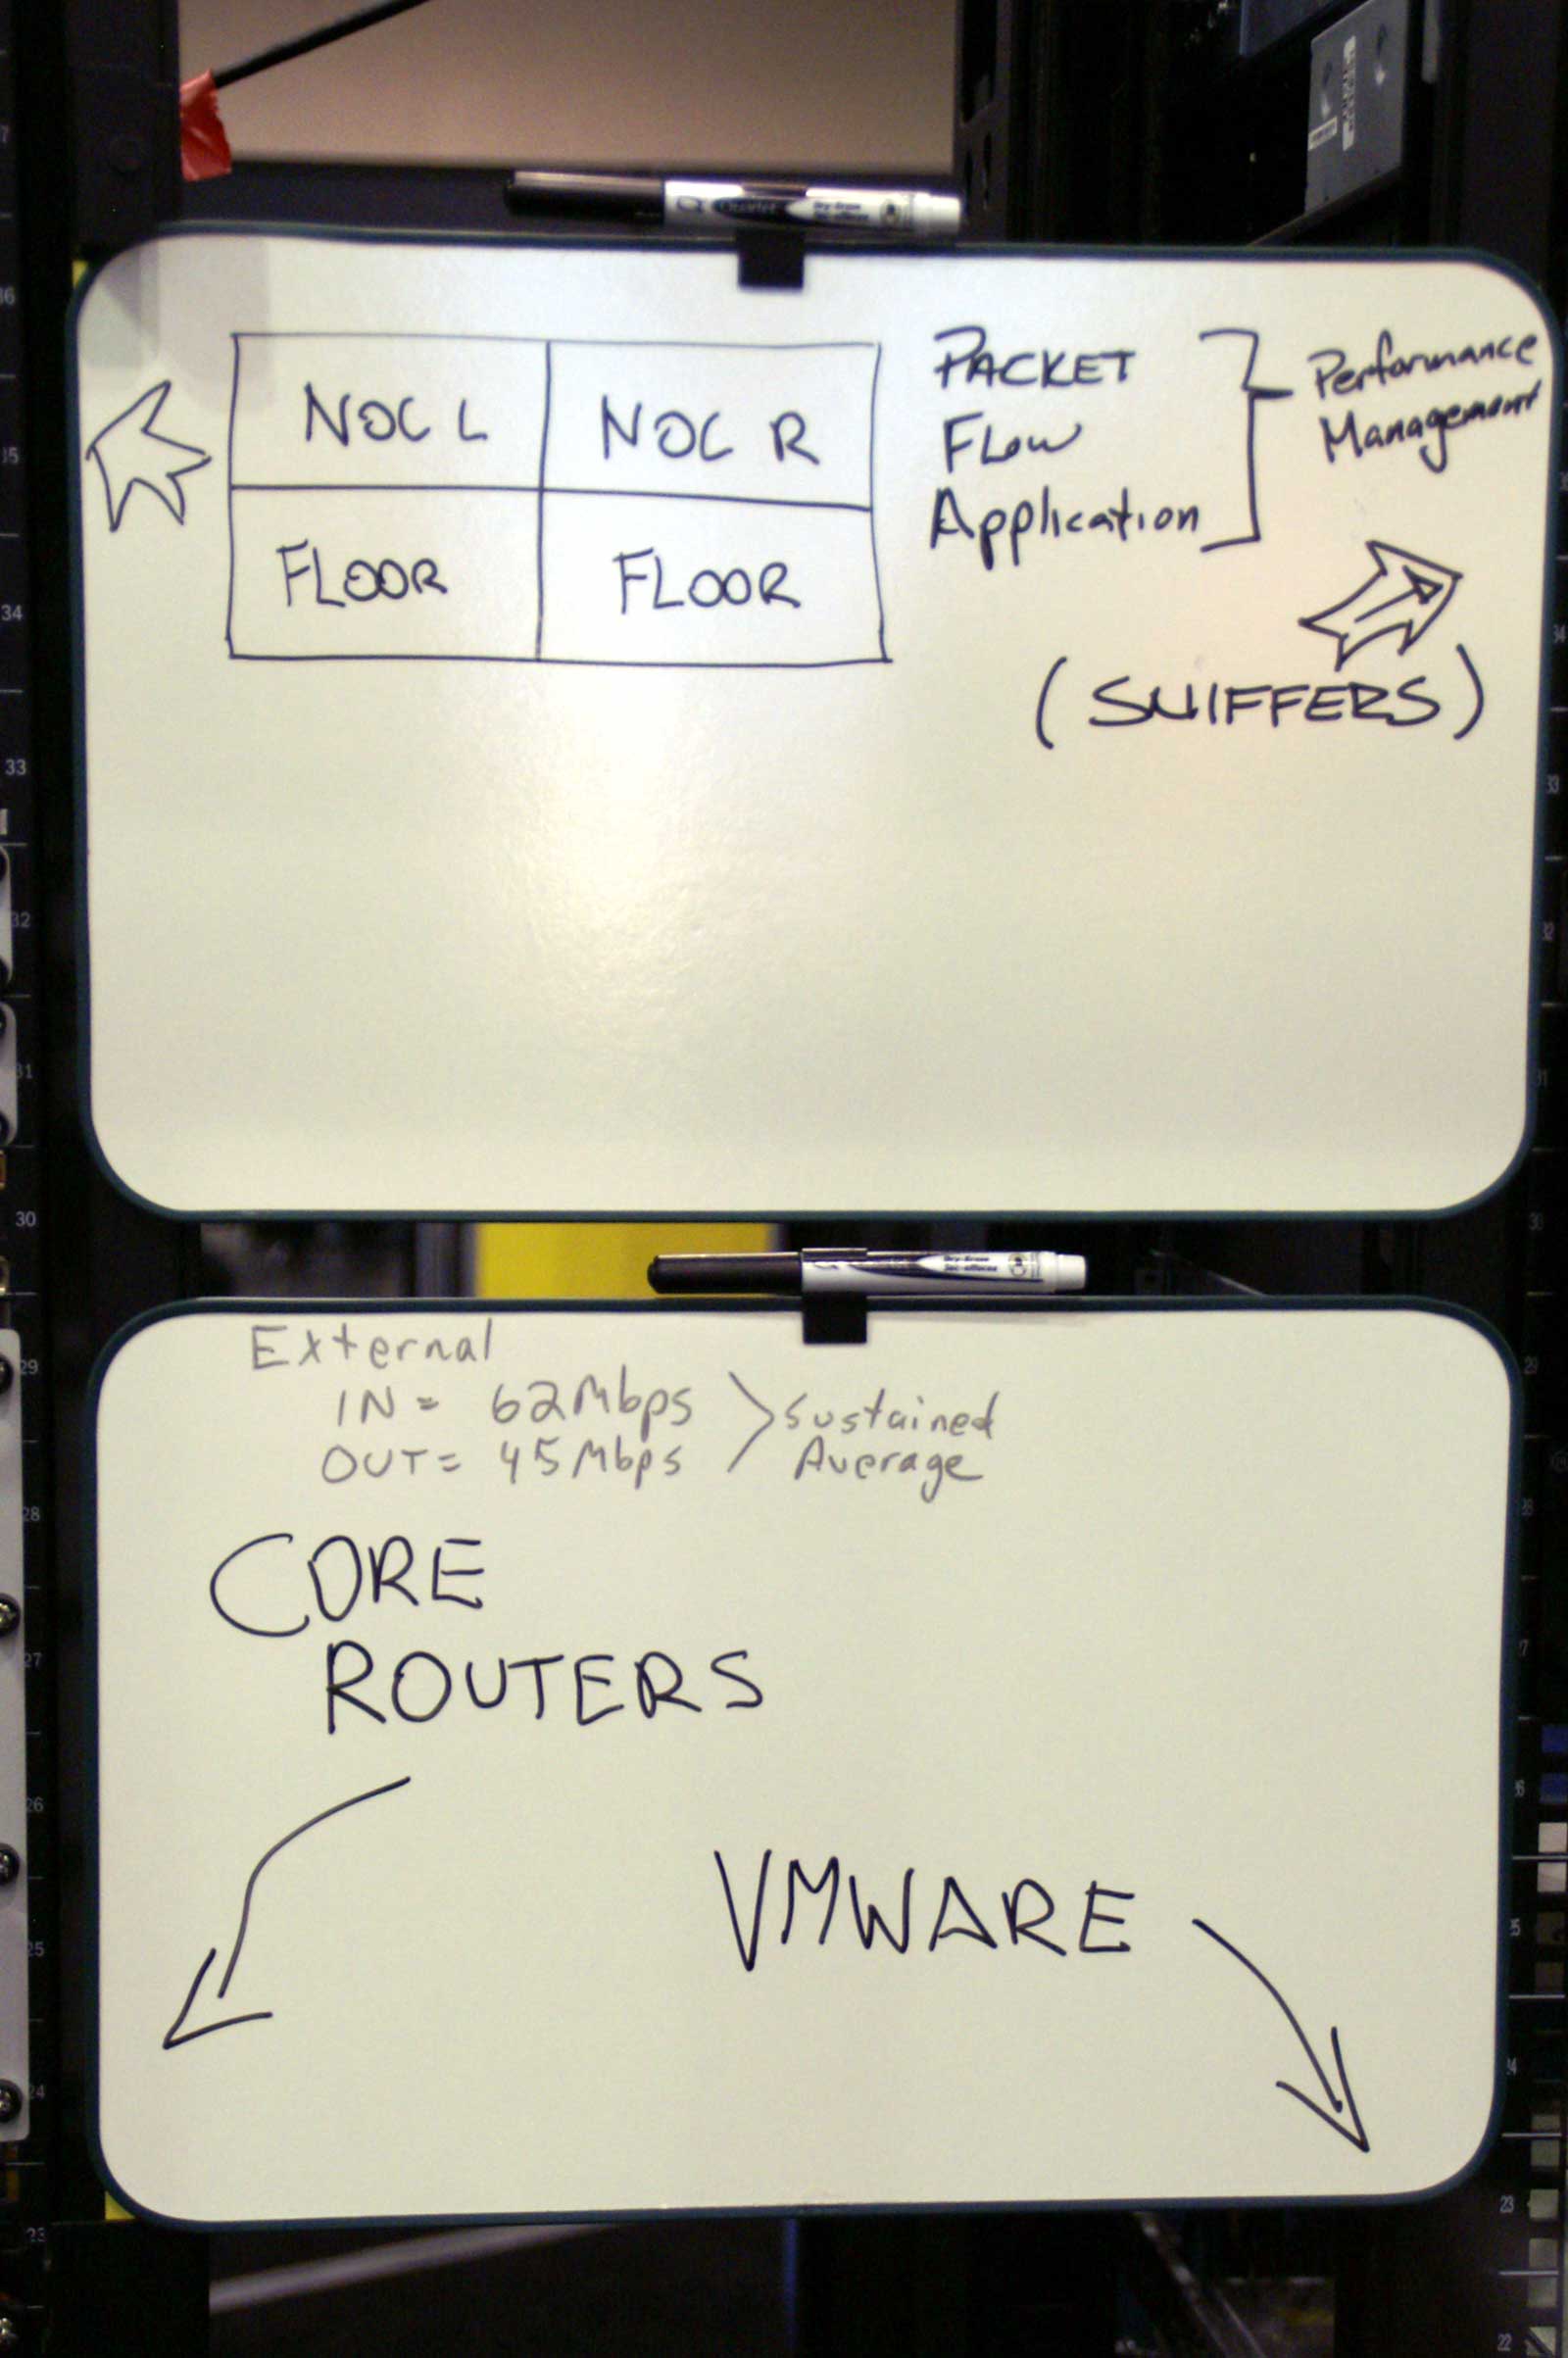 NOC L
NOC R
FLOOR
FLOOR
PACKET
FLOW
Application
Performance
Management
(SNIFFERS)
External
IN = 62Mbps
OUT = 45Mbps
Sustained
Average
CORE
ROUTERS
VMWARE
36
35
34
33
32
31
30
29
28
27
26
25
24
23
22